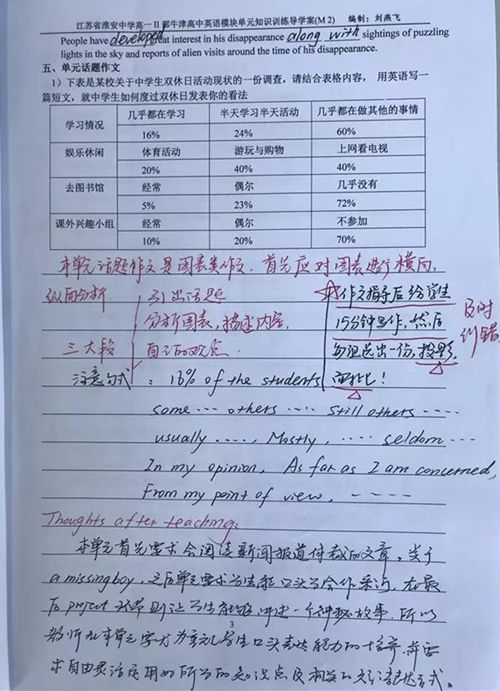 江苏省淮安中学高一II部牛津高中英语模块单元知识训练导学案(M2) 编制：刘燕飞
People have developed great interest in his disappearance along with sightings of puzzling
lights in the sky and reports of alien visits around the time of his disappearance.
五、单元话题作文
1）下表是某校关于中学生双休日活动现状的一份调查，请结合表格内容， 用英语写一
篇短文，就中学生如何度过双休日发表你的看法
学习情况 几乎都在学习 半天学习半天活动 几乎都在做其他的事情
16% 24% 60%
娱乐休闲 体育活动 游玩与购物 上网看电视
20% 40% 40%
去图书馆 经常 偶尔 几乎没有
5% 23% 72%
课外兴趣小组 经常 偶尔 不参加
10% 20% 70%
本单元话题作文是图表类作文，首先应对图表进行横向，
纵向分析 引出话题
分析图表，描述内容.
三大段 自己的观点.
作文指导后给学生
15分钟写作，然后
每组选出一份，投影，
面批！
及时
纠错
注意句式：16% of the students
some ... others .... Still others ....
usually ...., Mostly, .... seldom ...
In my opinion, As far as I am concerned,
From my point of view, ----
Thoughts after teaching:
本单元首先要求会阅读新闻报道体裁的文章，关于
a missing boy，之后单元要求学生能口头合作采访，在最
后project 环节则让学生讲一个神秘故事，所以
教师在本单元要大力学生口头表达能力的培养，并要
求自由灵活应用所学的知识点及相关的表达方式。
3